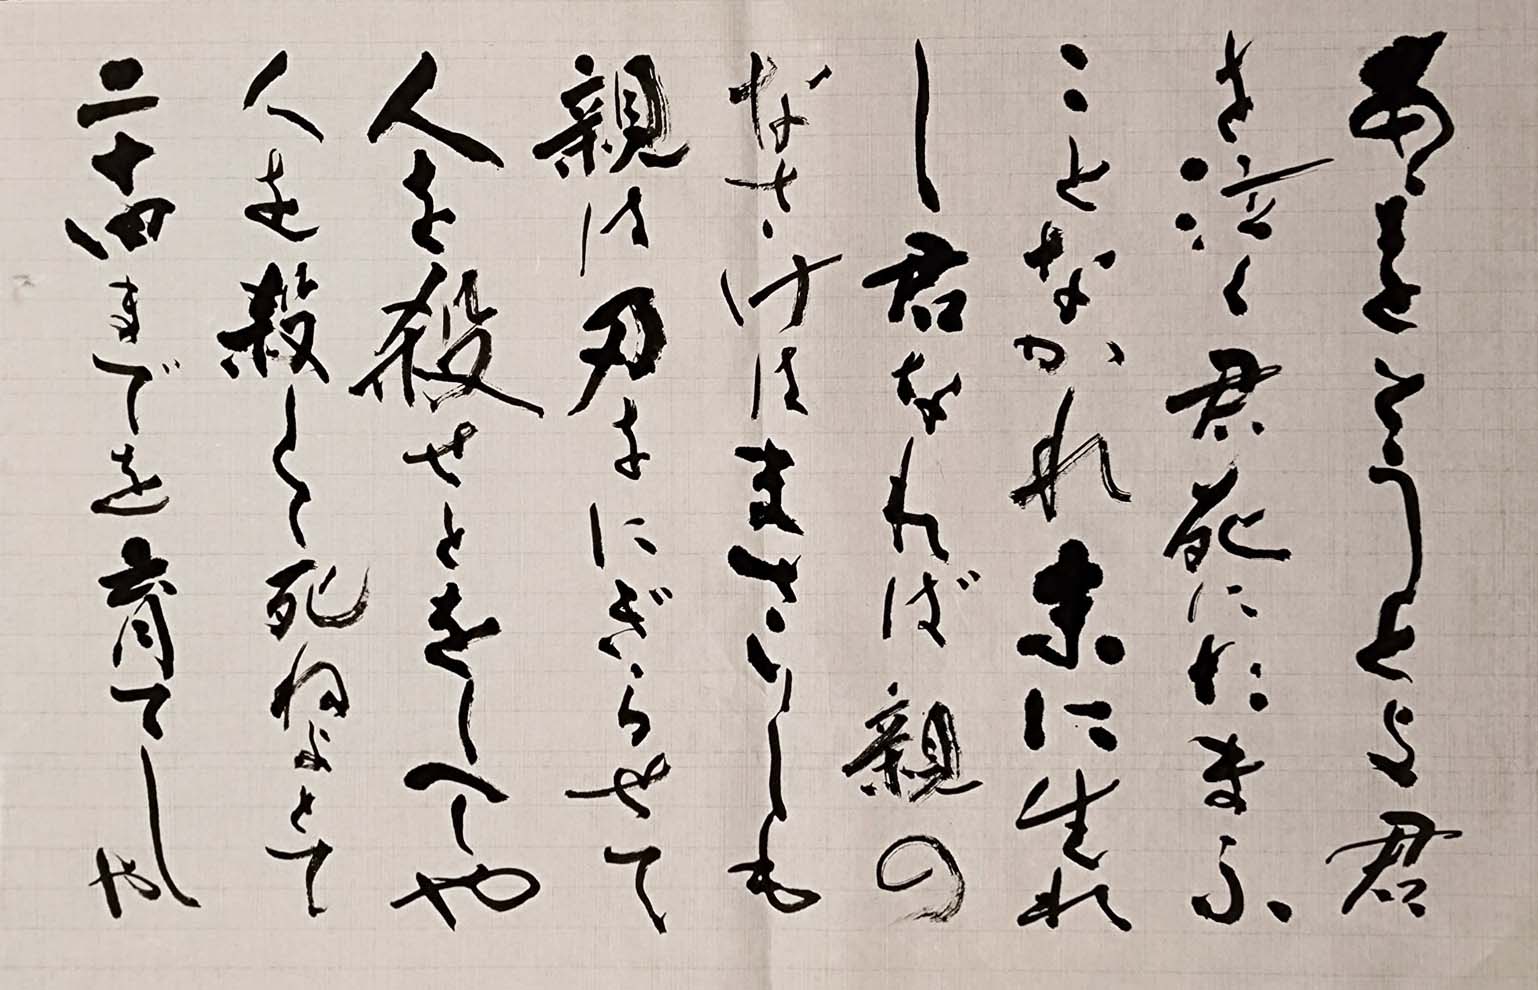 あゝをとうとよ君
を泣く君死にたまふ
ことなかれ末に生れ
し君なれば親の
なさけはまさりしも
親は刃をにぎらせて
人を殺せとをしへしや
人を殺して死ねよとて
二十四までを育てしや